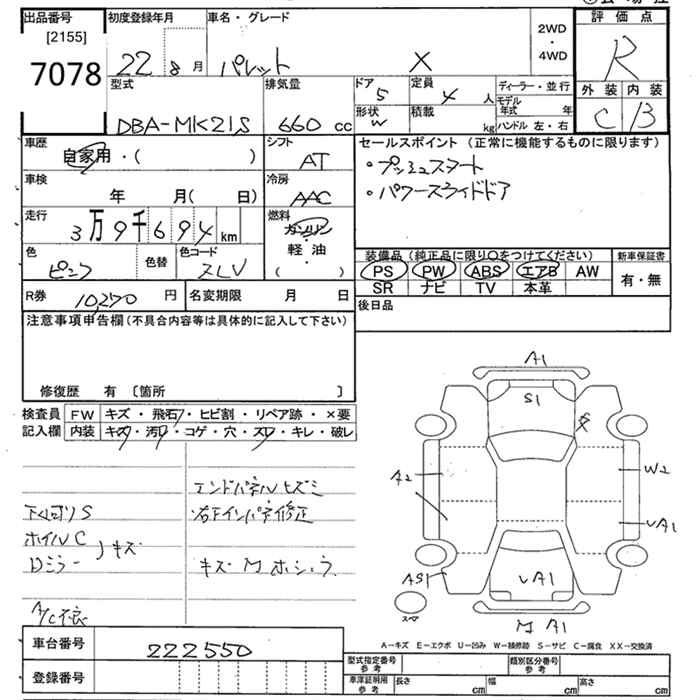 出品番号 初度登録年月 車名・グレード 2WD・4WD 評価点
[2155]
7078 22 8月 パレット X R
型式 排気量 ドア 5 定員 4人 ディーラー・並行 外装 内装
DBA-MK21S 660cc 形状 W 積載 kg モデル年式 年 ハンドル 左・右 C B
車歴 自家用・( ) シフト AT セールスポイント (正常に機能するものに限ります)
・プッシュスタート
車検 年 月( 日) 冷房 AAC ・パワースライドドア
走行 3万9千694km 燃料 ガソリン・軽油 ( )
色 ピンク 色替 色コード ZLV
装備品(純正品に限り○をつけてください) 新車保証書
PS PW ABS エアB AW 有・無
SR ナビ TV 本革
R券 10,270円 名変期限 月 日 後日品
注意事項申告欄(不具合内容等は具体的に記入して下さい)
修復歴 有 〔箇所 〕
検査員 FW キズ・飛石・ヒビ割・リペア跡・×要
記入欄 内装 キズ・汚れ・コゲ・穴・スレ・キレ・破レ
エンドパネルヒズミ
下回りS 右下インパネ修正
ホイルC
Dミラー キズ
キズ M ホシュウ
A/C不良
A1
S1
A2
W2
UA1
AS1
UA1
スペア
M A1
A-キズ E-エクボ U-凹み W-補修跡 S-サビ C-腐食 XX-交換済
車台番号 222550
型式指定番号 参考 類別区分番号 参考
登録番号 車庫証明用 参考 長さ cm 幅 cm 高さ cm